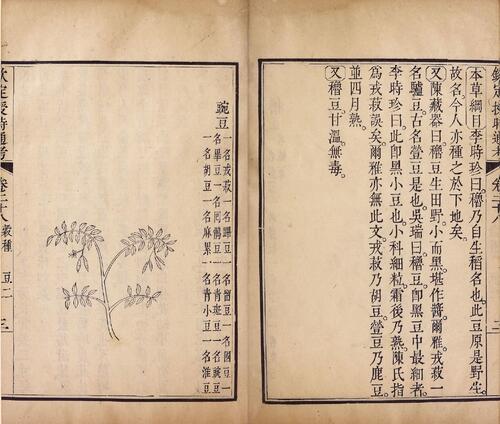 本草綱目李時珍曰穭乃自生稻名也此豆原是野生
故名今人亦種之於下地矣
又陳藏器曰穭豆生田野小而黑堪作醬爾雅戎菽一
名驢豆古名䝁豆是也吳瑞曰穭豆即黑豆中最細者
李時珍曰此即黑小豆也小科細粒霜後乃熟陳氏指
為戎菽誤矣爾雅亦無此文戎菽乃胡豆䝁豆乃鹿豆
並四月熟
又穭豆甘溫無毒
欽定授時通考
卷二十八
豌豆
一名戎菽一名蹕豆一名畱豆一名國豆一
名畢豆一名回鶻豆一名青斑豆一名豌豆
一名胡豆一名麻累一名青小豆一名淮豆
欽定授時通考
卷二十八
穀種
豆二
三